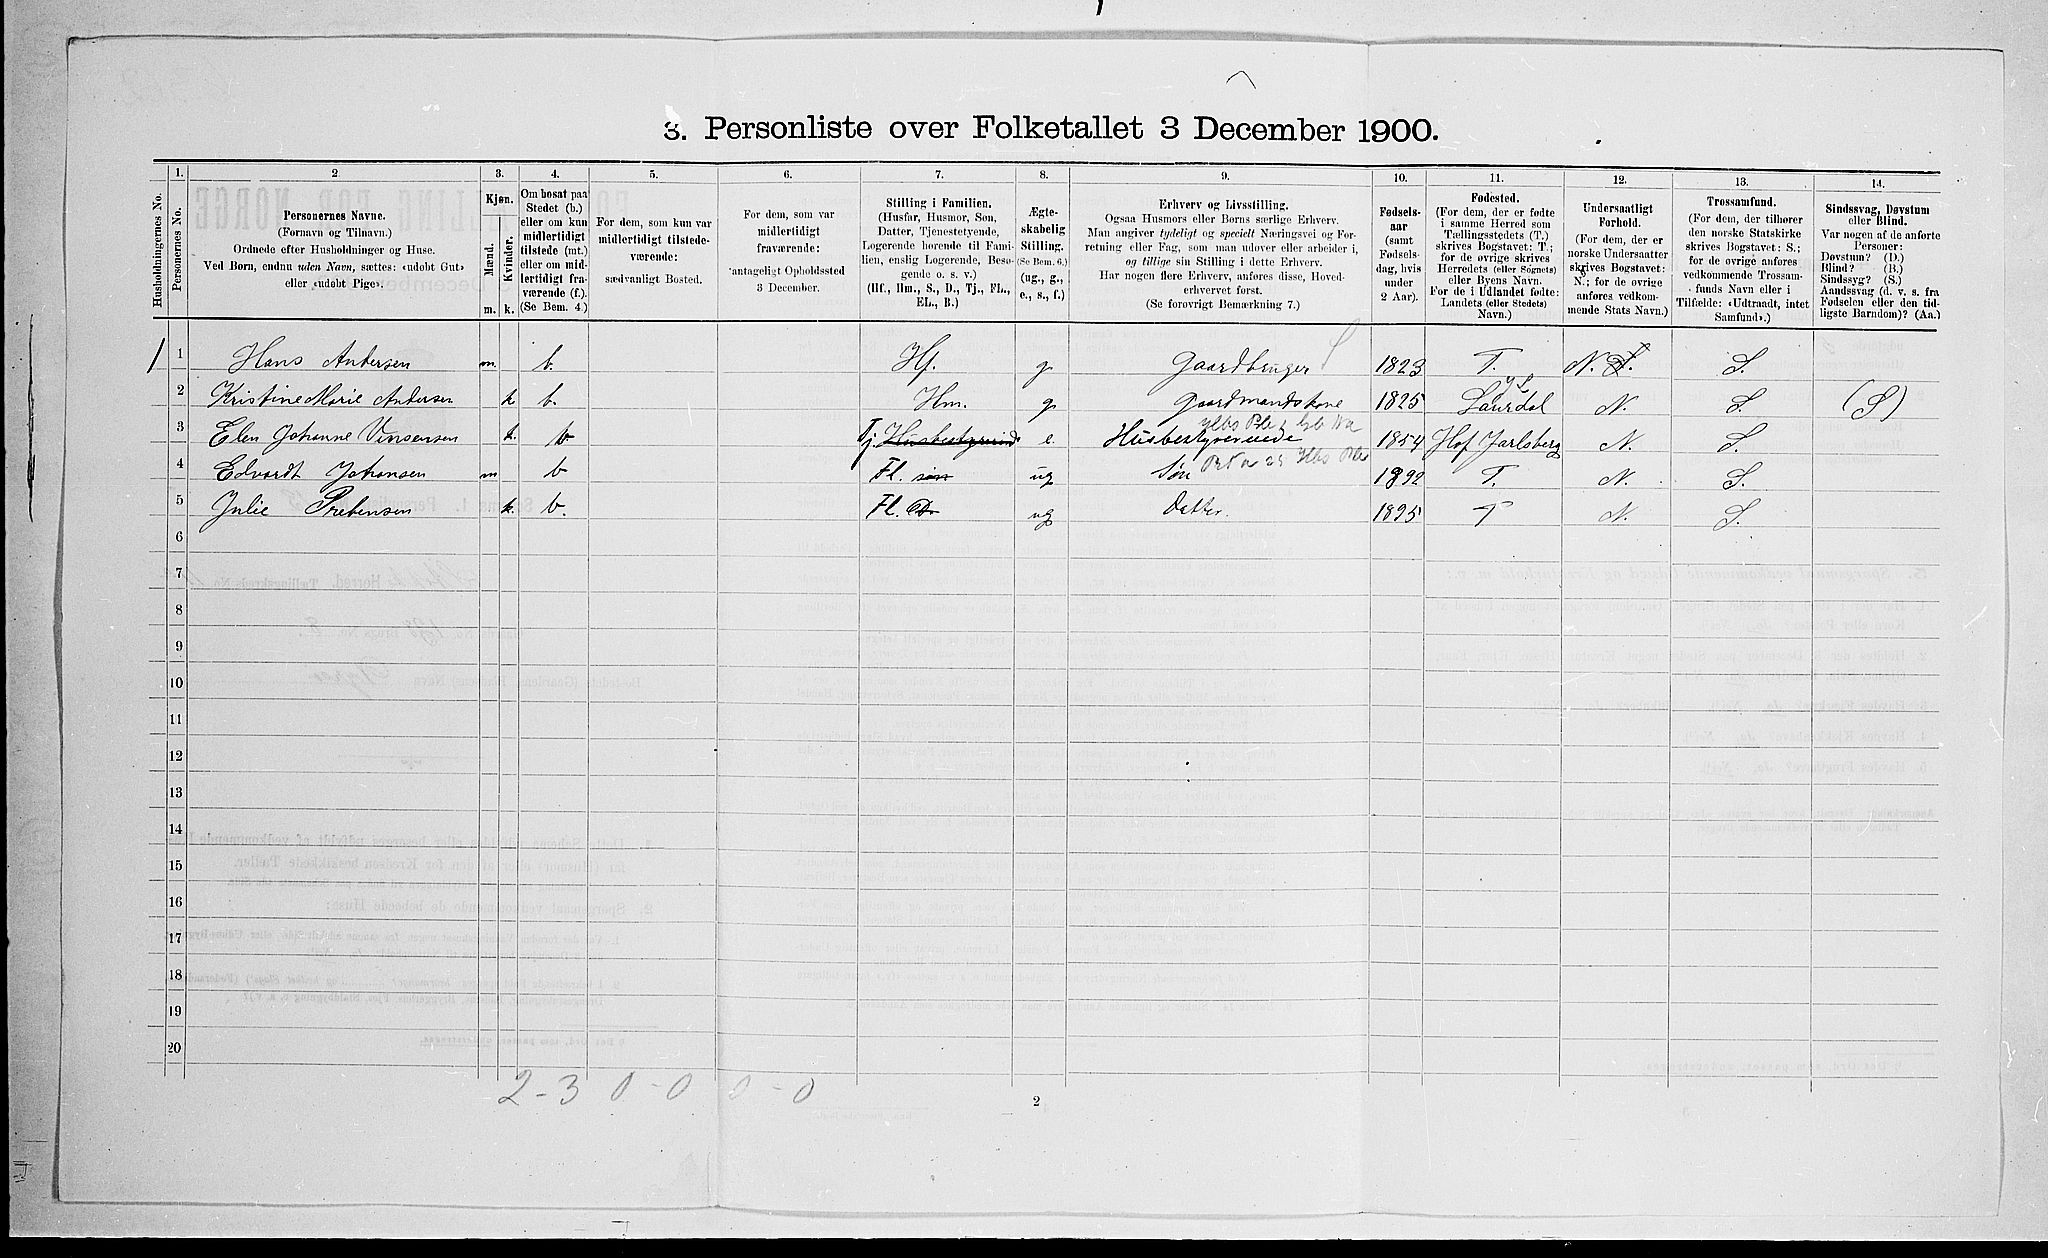 3. Personliste over Folketallet 3 December 1900.
1. 2. 3. 4. 5. 6. 7. 8. 9. 10. 11. 12. 13. 14.
Husholdningernes No.
Personernes No.
Personernes Navne.
(Fornavn og Tilnavn.)
Ordnede efter Husholdninger og Huse.
Ved Børn, endnu uden Navn, sættes: «udøbt Gut»
eller «udøbt Pige».
Kjøn.
Mænd.
Kvinder.
m. k.
Om bosat paa
Stedet (b.)
eller om kun
midlertidigt
tilstede (mt.)
eller om mid-
lertidigt fra-
værende (f.).
(Se Bem. 4.)
For dem, som kun var
midlertidigt tilstede-
værende:
sædvanligt Bosted.
For dem, som var
midlertidigt
fraværende:
antageligt Opholdssted
3 December.
Stilling i Familien.
(Husfar, Husmor, Søn,
Datter, Tjenestetyende,
Logerende hørende til Fami-
lien, enslig Logerende, Besø-
gende o. s. v.)
(Hf., Hm., S., D., Tj., FL.,
EL., B.)
Ægte-
skabelig
Stilling.
(Se Bem. 6.)
(ug., g.,
e., s., f.)
Erhverv og Livsstilling.
Ogsaa Husmors eller Børns særlige Erhverv.
Man angiver tydeligt og specielt Næringsvei og For-
retning eller Fag, som man udover eller arbeider i,
og tillige sin Stilling i dette Erhverv.
Har nogen flere Erhverv, anføres disse, Hoved-
erhvervet først.
(Se forøvrigt Bemærkning 7.)
Fødsels-
aar
(samt
Fødsels-
dag, hvis
under
2 Aar).
Fødested.
(For dem, der er fødte
i samme Herred som
Tællingsstedets (T.)
skrives Bogstavet: T.;
for de øvrige skrives
Herredets (eller Sognets)
eller Byens Navn.
For de i Udlandet fødte:
Landets (eller Stedets)
Navn.)
Undersaatligt
Forhold.
(For dem, der er
norske Undersaatter
skrives Bogstavet:
N.; for de øvrige
anføres vedkom-
mende Stats Navn.)
Trossamfund.
(For dem, der tilhører
den norske Statskirke
skrives Bogstavet: S.;
for de øvrige anføres
vedkommende Trossam-
funds Navn eller i
Tilfælde: «Udtraadt, intet
Samfund».)
Sindssvag, Døvstum
eller Blind.
Var nogen af de anførte
Personer:
Døvstum? (D.)
Blind? (B.)
Sindssyg? (S.)
Aandssvag (d. v. s. fra
Fødselen eller den tid-
ligste Barndom)? (Aa.)
1 1 Hans Andersen m. b. Hf. g Gaardbruger 1823 T. N. S. S.
2 Kristine Marie Andersen k b. Hm. g Gaardmandskone 1825 Laurdal N. S. (S)
3 Elen Johanne Vinsensen k. b Tj Husbestyrerinde e. Husbestyrerinde 1854 Hof Jarlsberg N. S.
4 Edvardt Johansen m b Fl. søn ug Søn 1892 T. N. S.
5 Julie Prebensen k. b. Fl. D. ug Datter. 1895 T N. S.
6
7
8
9
10
11
12
13
14
15
16
17
18
19
20
2-3 0-0 0-0
2